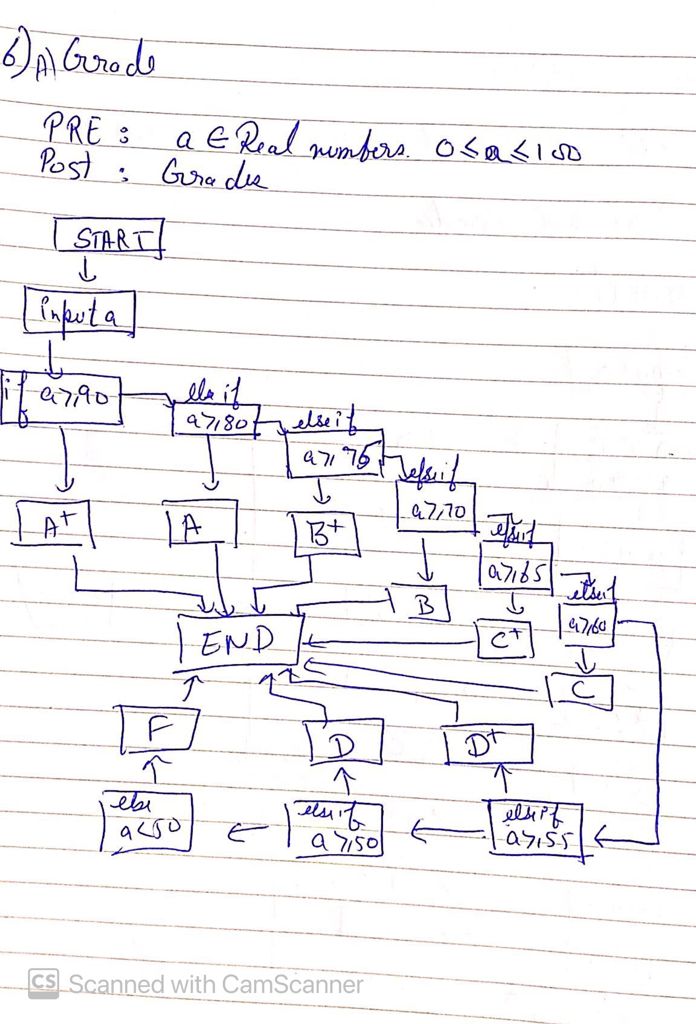 6) A) Grade
PRE : a ∈ Real numbers. 0 ≤ a ≤ 100
Post : Grades
START
input a
if a ≥ 90
else if
a ≥ 80
else if
a ≥ 75
else if
a ≥ 70
else if
a ≥ 65
else if
a ≥ 60
A+
A
B+
B
C+
C
END
F
D
D+
else
a < 50
else if
a ≥ 50
else if
a ≥ 55
CS Scanned with CamScanner